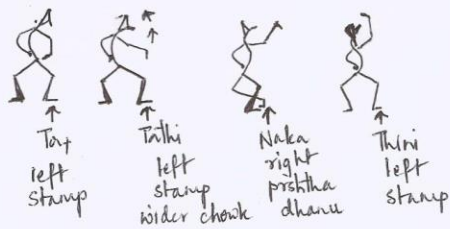 Tat
left
stamp
Tathi
left
stamp
wider chowk
Naka
right
prshtha
dhanu
Thini
left
stamp